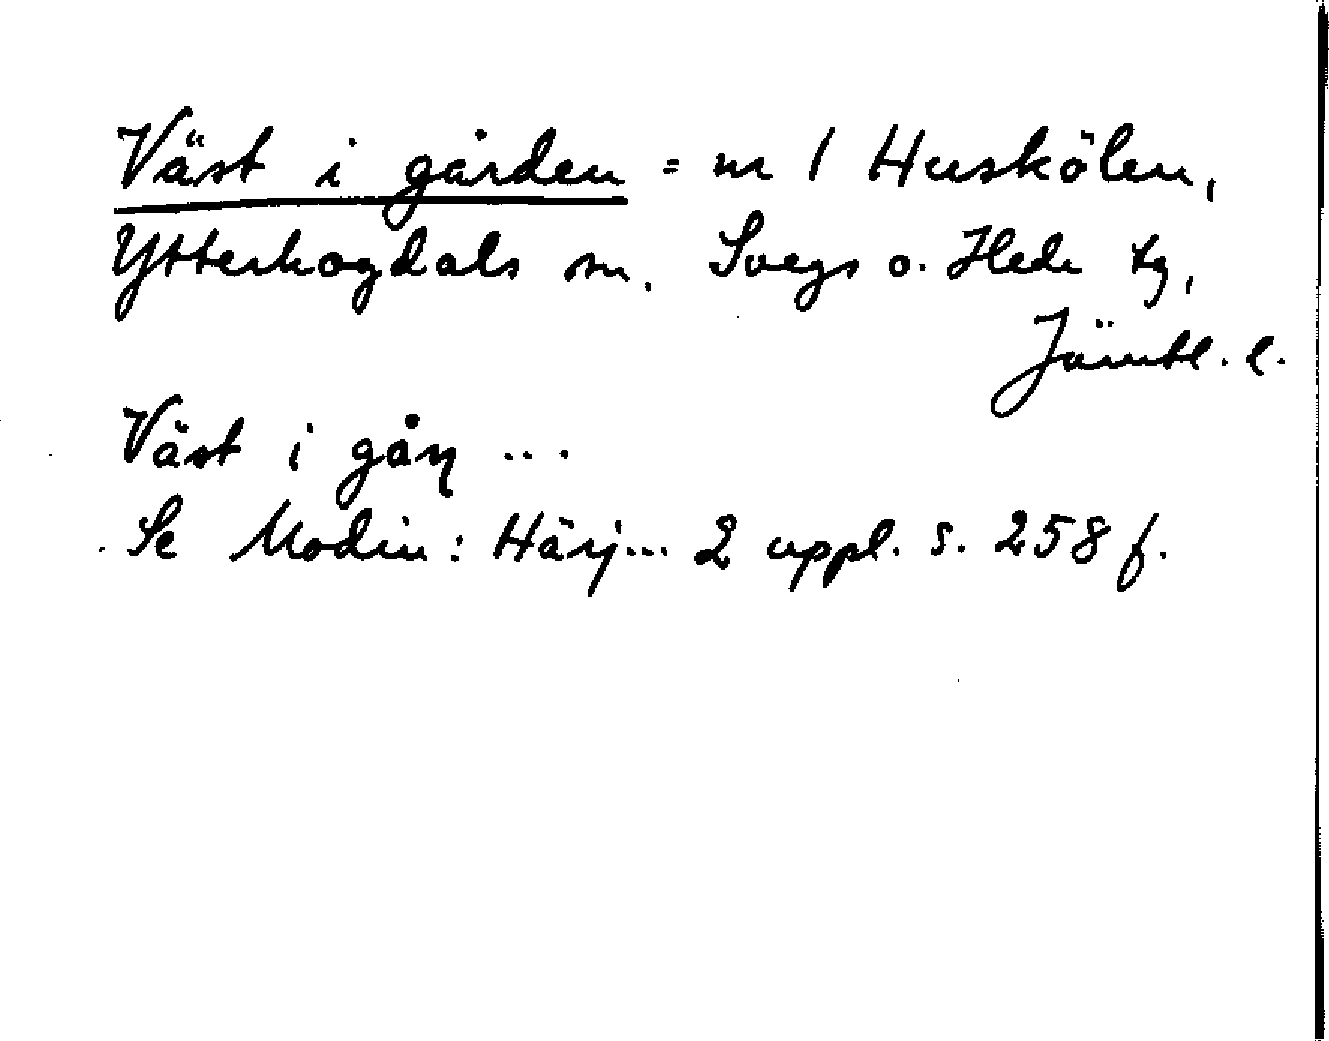 Väst i gården = nr 1 Huskölen,
Ytterhogdals sn. Svegs o. Hede tg,
Jämtl. l.
Väst i gåɳ ...
Se Modin: Härj... 2 uppl. s. 258 f.